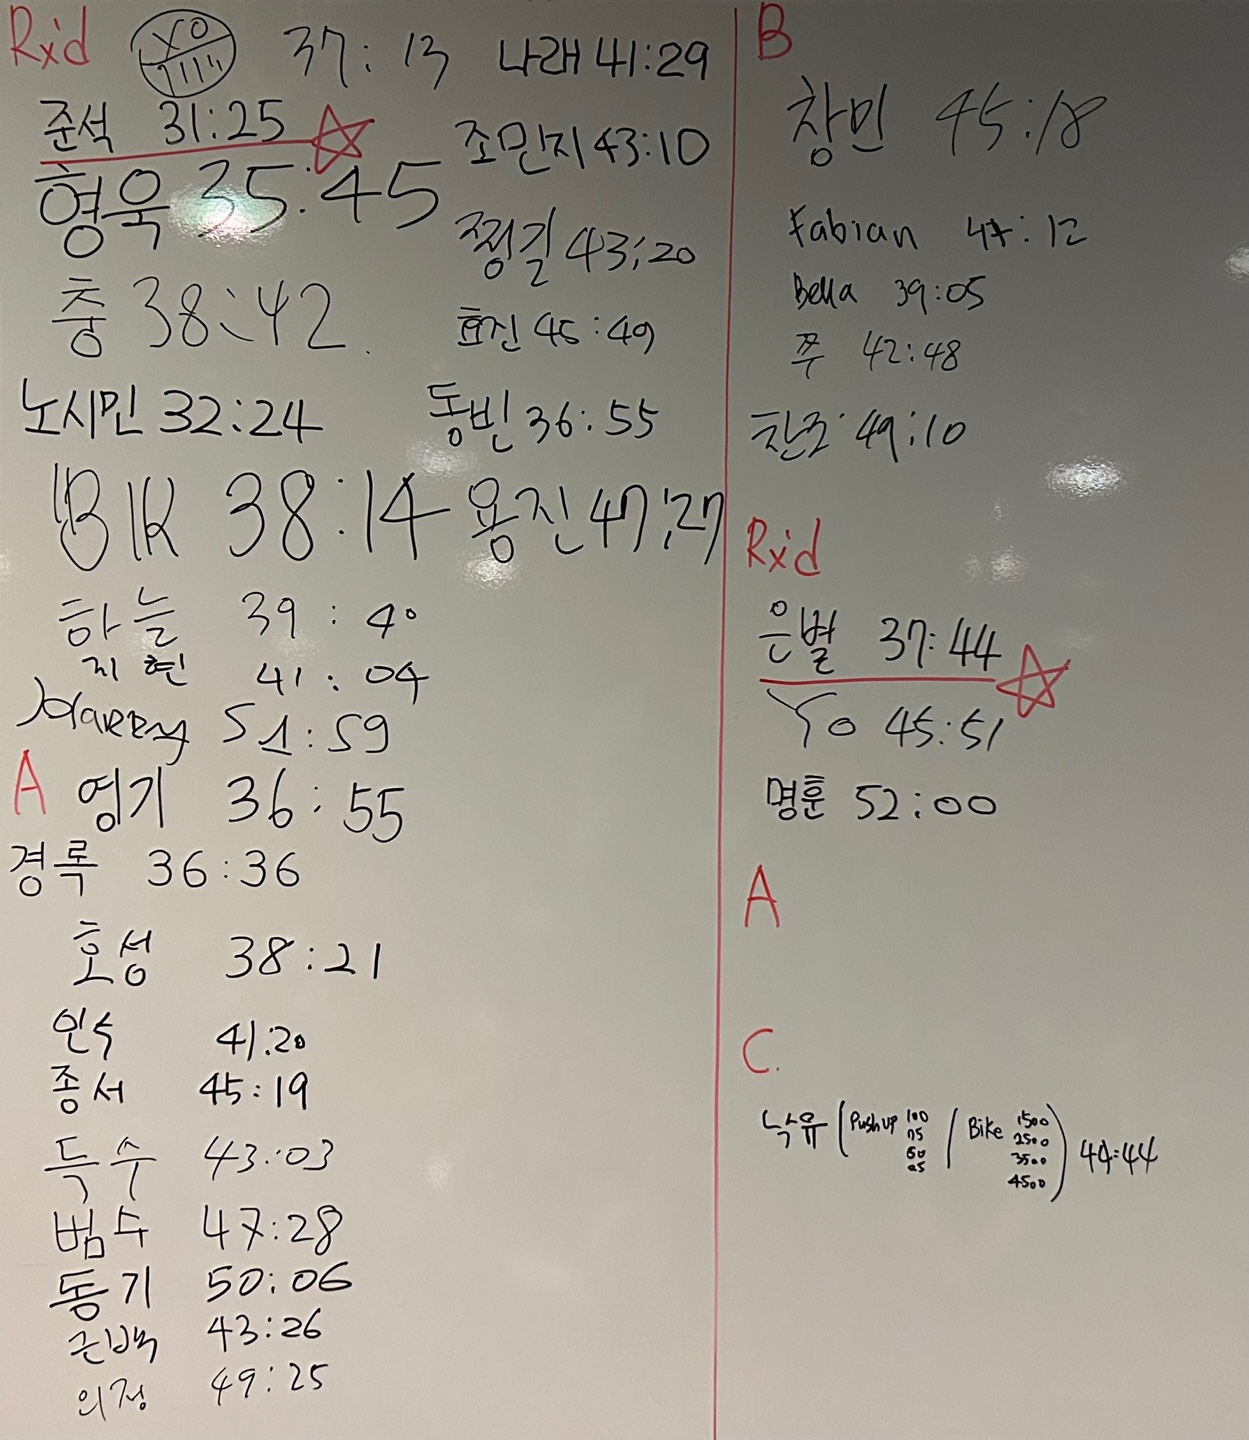 Rx'd
37:13
나래 41:29
준석 31:25
조민지 43:10
형욱 35:45
찡길 43:20
충 38:42
효진 45:49
노시민 32:24
동빈 36:55
BIK 38:14
용진 47:27
하늘 39:40
지현 41:04
Harry 51:59
A
영기 36:55
경록 36:36
호성 38:21
인수 41:20
종서 45:19
득수 43:03
범수 47:28
동기 50:06
은백 43:26
의정 49:25
B
창민 45:18
Fabian 47:12
Bella 39:05
쭈 42:48
찬조 49:10
Rx'd
은별 37:44
Yo 45:51
명훈 52:00
A
C.
녹유 (Push up 100 / Bike 1500) 44:44
75 2500
50 3500
25 4500